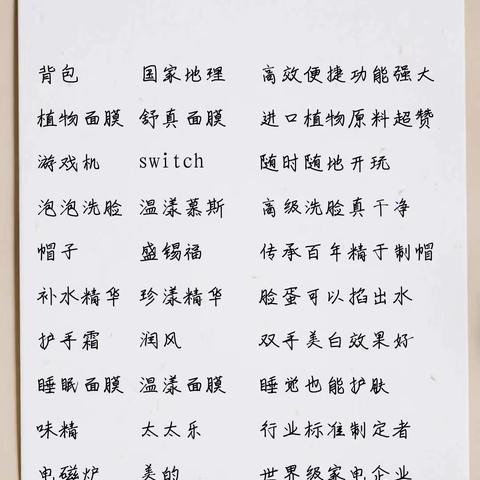 背包 国家地理 高效便捷功能强大
植物面膜 舒真面膜 进口植物原料超赞
游戏机 switch 随时随地开玩
泡泡洗脸 温漾慕斯 高级洗脸真干净
帽子 盛锡福 传承百年精于制帽
补水精华 珍漾精华 脸蛋可以掐出水
护手霜 润风 双手美白效果好
睡眠面膜 温漾面膜 睡觉也能护肤
味精 太太乐 行业标准制定者
电磁炉 美的 世界级家电企业